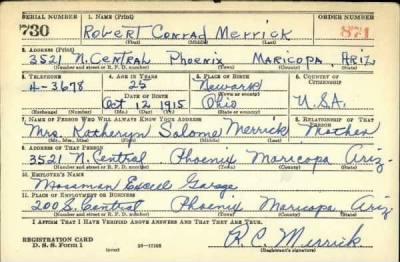 SERIAL NUMBER 1. NAME (Print) ORDER NUMBER
730 Robert Conrad Merrick 871
(First) (Middle) (Last)
2. ADDRESS (Print)
3521 N. Central Phoenix Maricopa Ariz.
(Number and street or R. F. D. number) (Town) (County) (State)
3. TELEPHONE 4. AGE IN YEARS 5. PLACE OF BIRTH 6. COUNTRY OF CITIZENSHIP
4-3678 25 Newark
DATE OF BIRTH (Town or county)
Oct 12 1915 Ohio U.S.A.
(Exchange) (Number) (Mo.) (Day) (Yr.) (State or country)
7. NAME OF PERSON WHO WILL ALWAYS KNOW YOUR ADDRESS 8. RELATIONSHIP OF THAT PERSON
Mrs. Katheryn Salome Merrick Mother
(Mr., Mrs., Miss) (First) (Middle) (Last)
9. ADDRESS OF THAT PERSON
3521 N. Central Phoenix Maricopa Ariz.
(Number and street or R. F. D. number) (Town) (County) (State)
10. EMPLOYER'S NAME
Mossman Garage
11. PLACE OF EMPLOYMENT OR BUSINESS
200 S. Central Phoenix Maricopa Ariz.
(Number and street or R. F. D. number) (Town) (County) (State)
I AFFIRM THAT I HAVE VERIFIED ABOVE ANSWERS AND THAT THEY ARE TRUE.
REGISTRATION CARD
D. S. S. Form 1 (over) R. C. Merrick
(Registrant's signature)